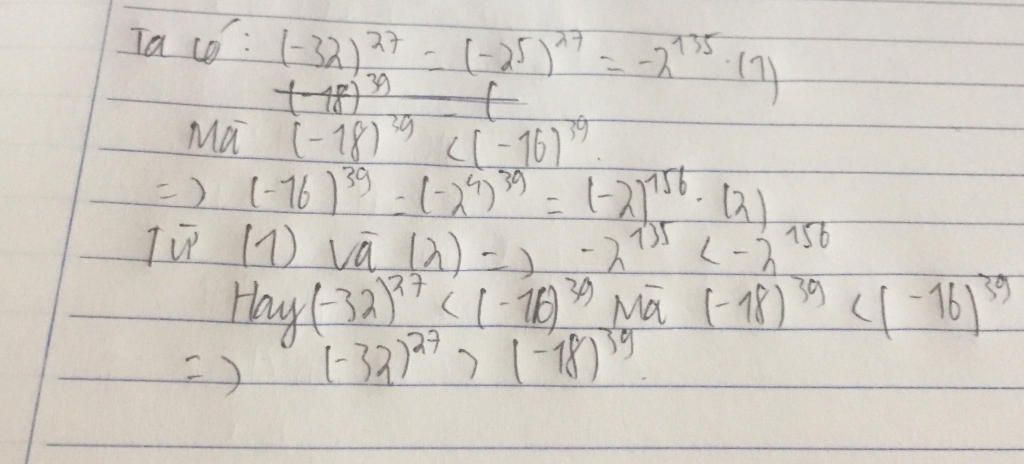 Ta có: (-32)^27 = (-25)^27 = -2^135. (1)
(-18)^39 = (
Mà (-18)^39 < (-16)^39.
=> (-16)^39 = (-2^4)^39 = (-2)^156. (2)
Từ (1) và (2) => -2^135 < -2^156
Hay (-32)^27 < (-16)^39 Mà (-18)^39 < (-16)^39
=> (-32)^27 > (-18)^39.